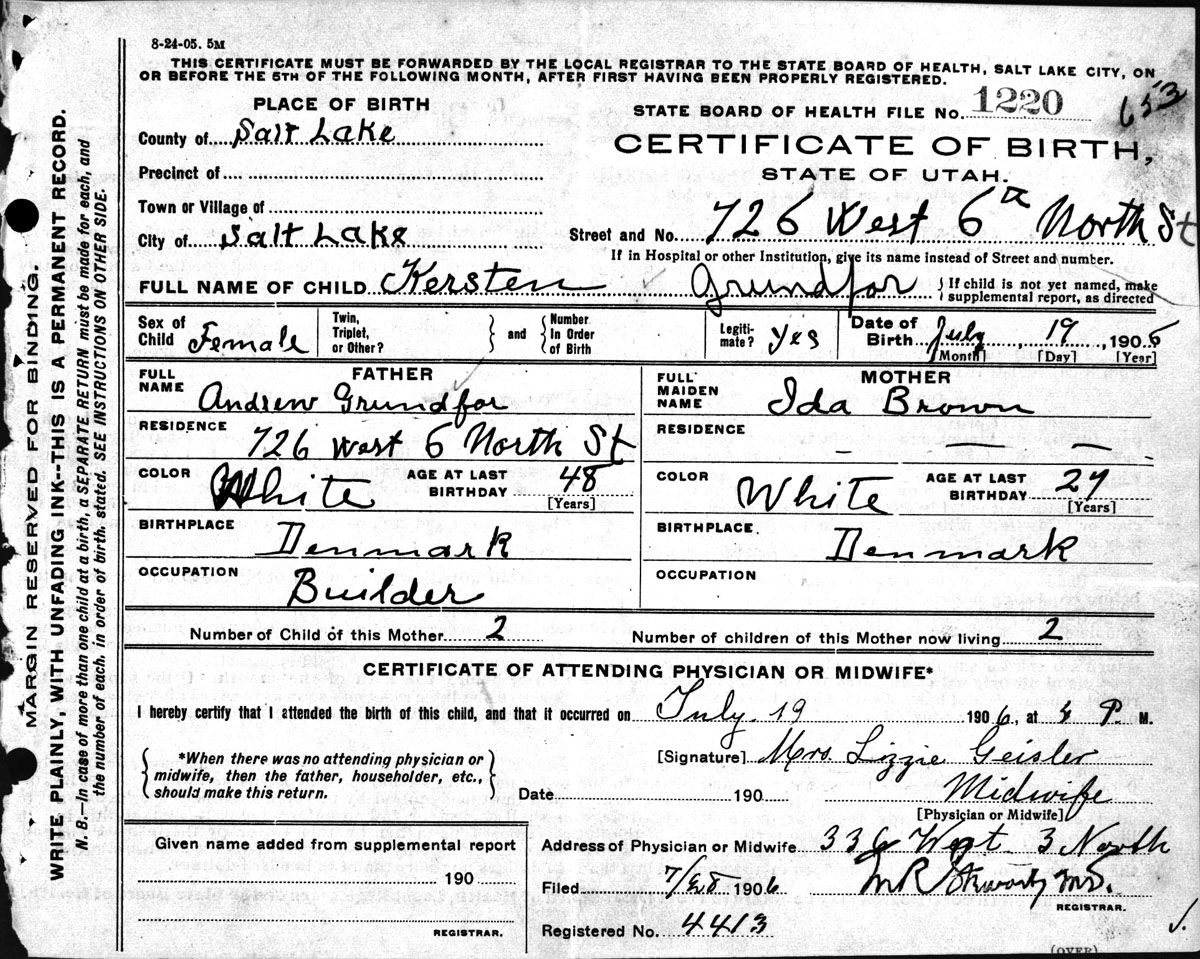 8-24-05. 5M
THIS CERTIFICATE MUST BE FORWARDED BY THE LOCAL REGISTRAR TO THE STATE BOARD OF HEALTH, SALT LAKE CITY, ON
OR BEFORE THE 5TH OF THE FOLLOWING MONTH, AFTER FIRST HAVING BEEN PROPERLY REGISTERED.
MARGIN RESERVED FOR BINDING.
WRITE PLAINLY, WITH UNFADING INK--THIS IS A PERMANENT RECORD.
N. B.—In case of more than one child at a birth, a SEPARATE RETURN must be made for each, and
the number of each, in order of birth, stated. SEE INSTRUCTIONS ON OTHER SIDE.
PLACE OF BIRTH
County of Salt Lake
Precinct of
Town or Village of
City of Salt Lake
STATE BOARD OF HEALTH FILE No. 1220
653
CERTIFICATE OF BIRTH,
STATE OF UTAH.
Street and No. 726 West 6th North St
If in Hospital or other Institution, give its name instead of Street and number.
FULL NAME OF CHILD Kersten Grundfor
If child is not yet named, make
supplemental report, as directed
Sex of Child Female
Twin, Triplet, or Other?
and
Number In Order of Birth
Legiti-mate? Yes
Date of Birth July 19, 1906
[Month] [Day] [Year]
FATHER
FULL NAME Andrew Grundfor
RESIDENCE 726 West 6 North St
COLOR White
AGE AT LAST BIRTHDAY 48
[Years]
BIRTHPLACE Denmark
OCCUPATION Builder
MOTHER
FULL MAIDEN NAME Ida Brown
RESIDENCE — —
COLOR White
AGE AT LAST BIRTHDAY 27
[Years]
BIRTHPLACE Denmark
OCCUPATION
Number of Child of this Mother 2
Number of children of this Mother now living 2
CERTIFICATE OF ATTENDING PHYSICIAN OR MIDWIFE*
I hereby certify that I attended the birth of this child, and that it occurred on July 19 1906, at P. M.
*When there was no attending physician or
midwife, then the father, householder, etc.,
should make this return.
[Signature] Mrs. Lizzie Geisler
Date 190
Midwife
[Physician or Midwife]
Given name added from supplemental report
190
REGISTRAR.
Address of Physician or Midwife 336 West 3 North
Filed 1906
M.D.
REGISTRAR.
Registered No. 4413
(OVER)